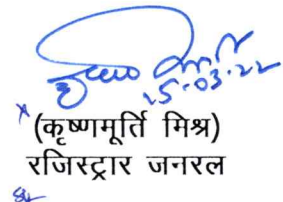 15.03.22
(कृष्णमूर्ति मिश्र)
रजिस्ट्रार जनरल